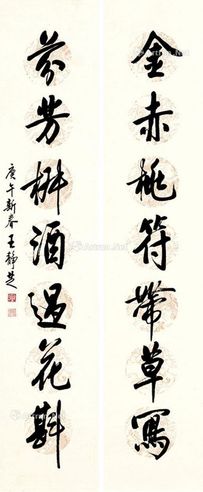 金赤桃符帶草寫
芬芳椒酒過花斟
庚午新春王靜芝